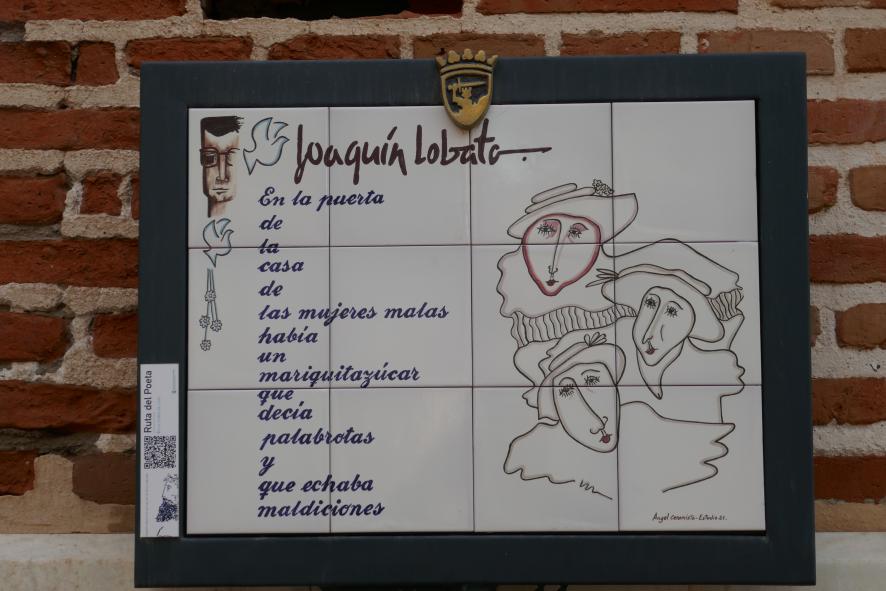 Joaquín Lobato.
En la puerta
de
la
casa
de
las mujeres malas
había
un
mariquitazúcar
que
decía
palabrotas
y
que echaba
maldiciones
Ángel Ceramista-Estudio 21.
Ruta del Poeta